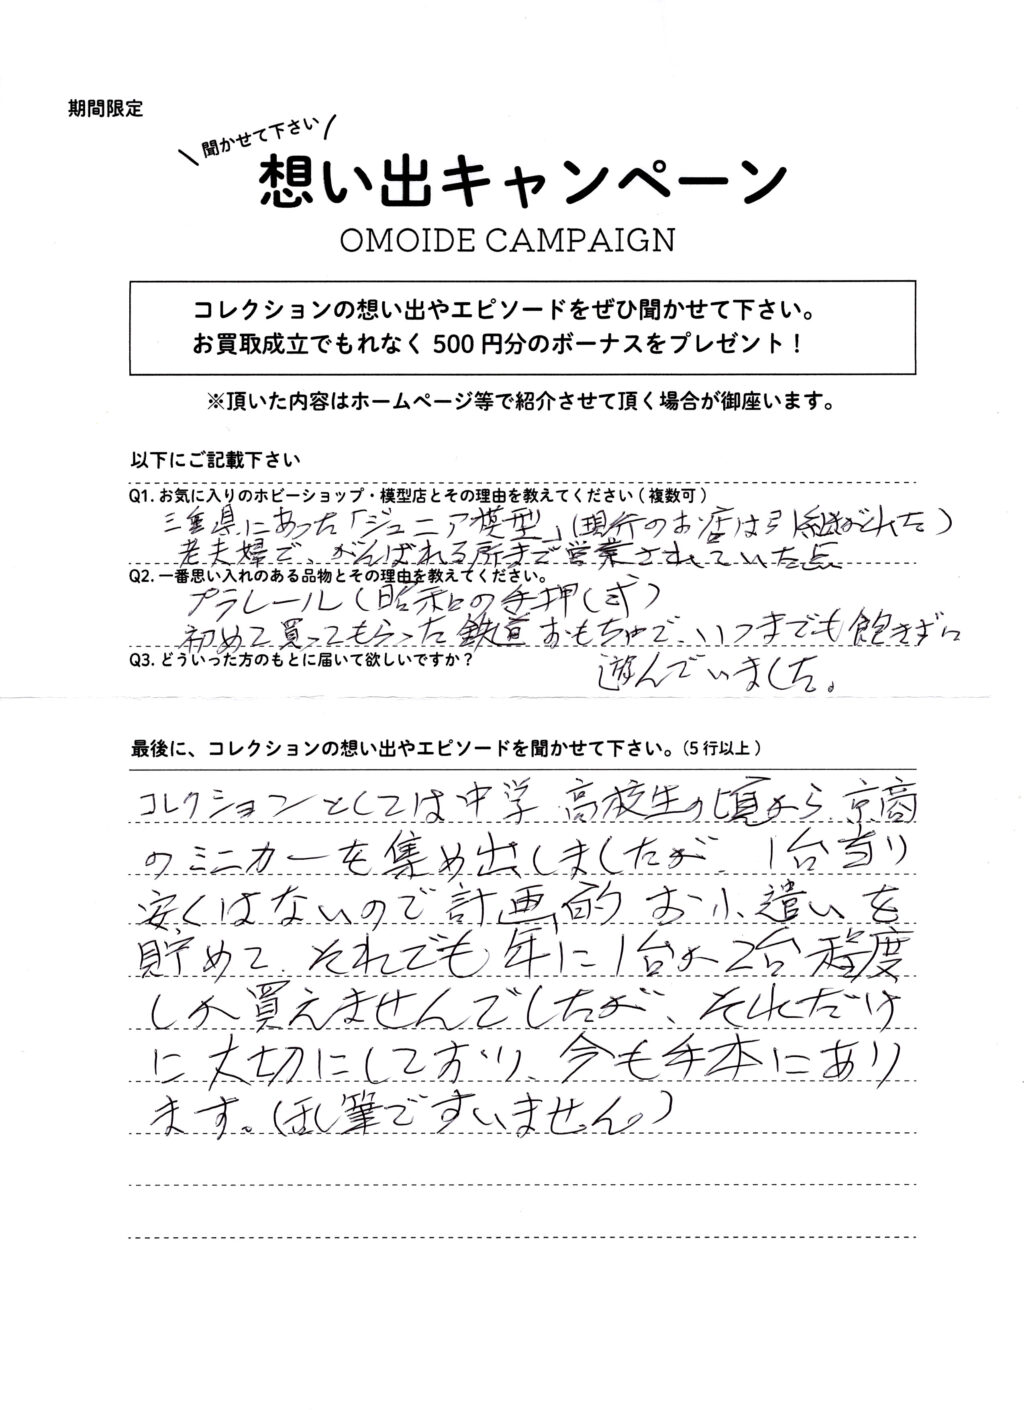 期間限定
聞かせて下さい
想い出キャンペーン
OMOIDE CAMPAIGN
コレクションの想い出やエピソードをぜひ聞かせて下さい。
お買取成立でもれなく 500 円分のボーナスをプレゼント！
※頂いた内容はホームページ等で紹介させて頂く場合が御座います。
以下にご記載下さい
Q1. お気に入りのホビーショップ・模型店とその理由を教えてください ( 複数可 )
三重県にあった「ジュニア模型」(現行のお店は引継がれた)
老夫婦で、がんばれる所まで営業されていた点
Q2. 一番思い入れのある品物とその理由を教えてください。
プラレール(昭和の手押し式)
初めて買ってもらった鉄道おもちゃで、いつまでも飽きずに
Q3. どういった方のもとに届いて欲しいですか？
遊んでいました。
最後に、コレクションの想い出やエピソードを聞かせて下さい。(5 行以上 )
コレクションとしては中学 高校生の頃から、京商
のミニカーを集め出しましたが、1台当り
安くはないので計画的 お小遣いを
貯めて、それでも年に1台か2台程度
しか買えませんでしたが、それだけ
に大切にしており、今も手本にあり
ます。(乱筆ですいません。)